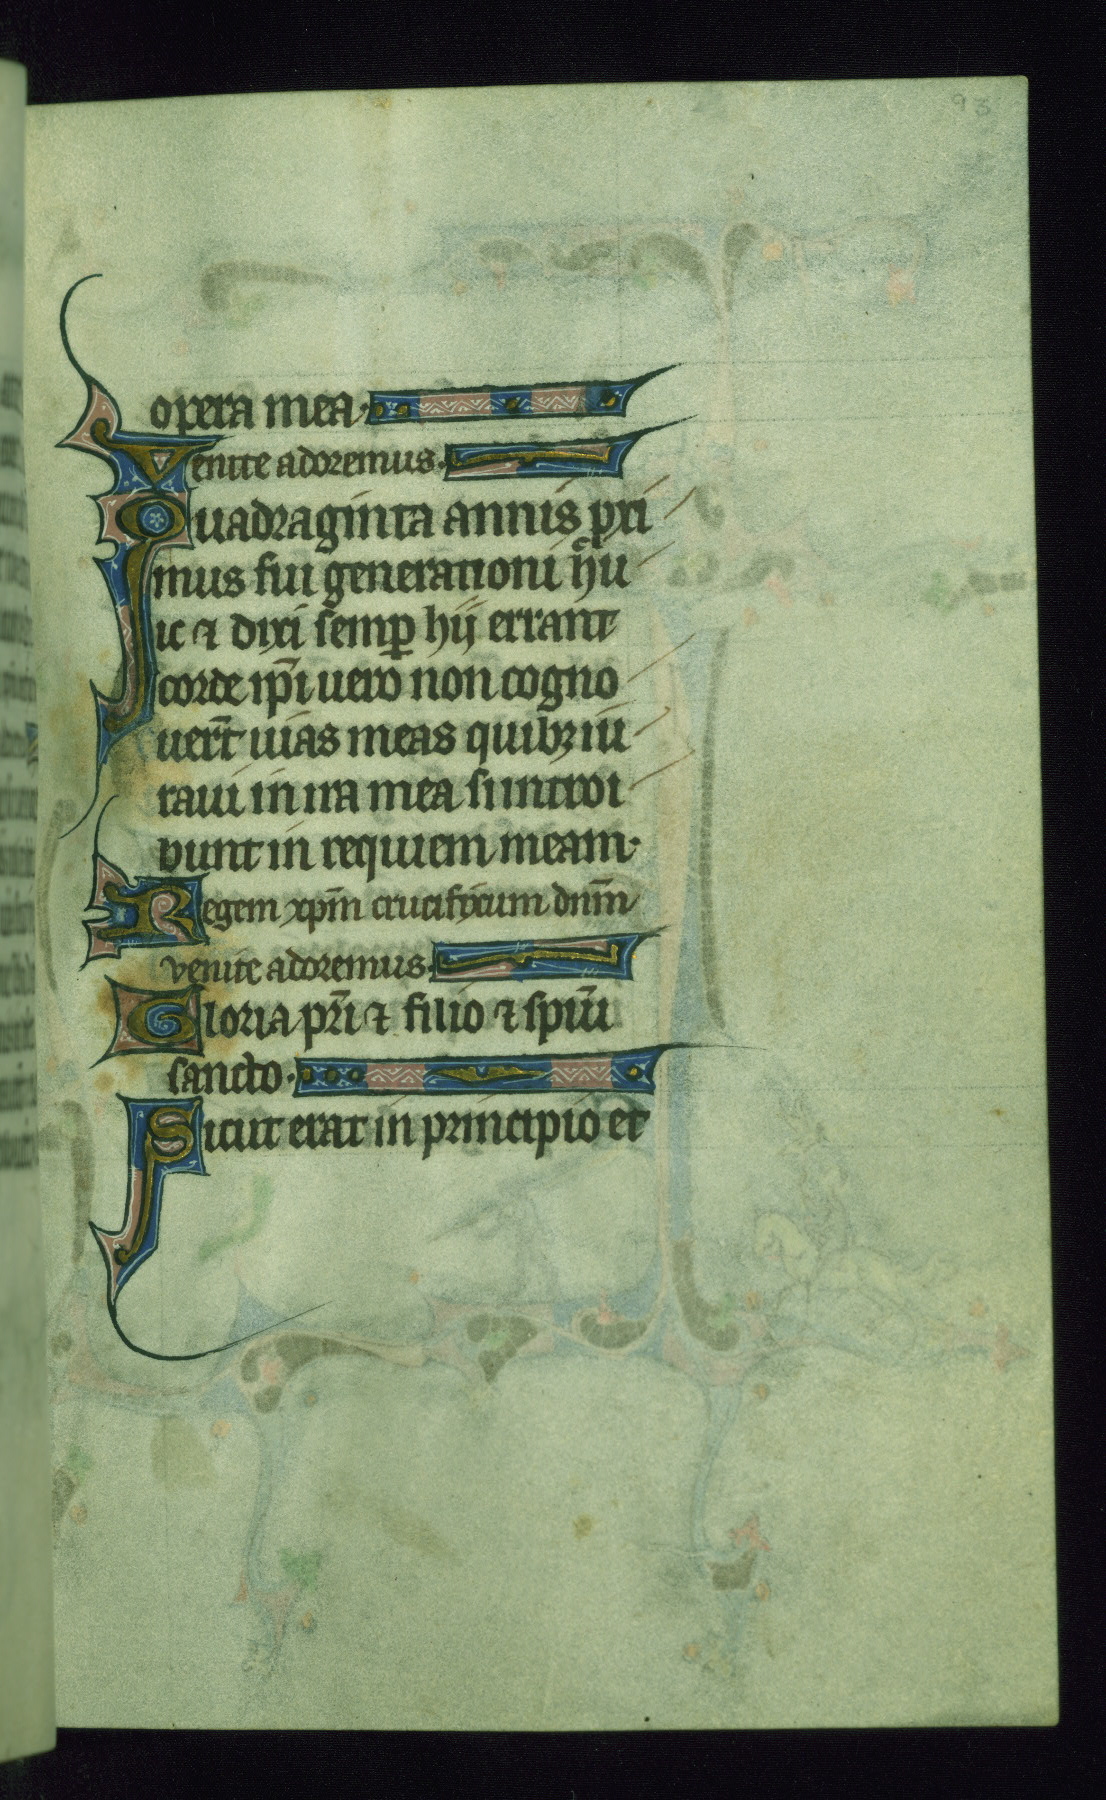 93
opera mea·
Venite adoremus·
Quadraginta annis p̱xi
mus fui generationi h̄u
ic ⁊ dixi semꝑ hij errant
corde ip̄i uero non cogno
uer̄t uias meas quibꝫ iu
raui in ira mea si introi
bunt in requiem meam·
Regem xp̄m crucifixum dn̄m
venite adoremus·
Gloria pr̄i ⁊ filio ⁊ spir̄ui
sancto·
Sicut erat in principio et